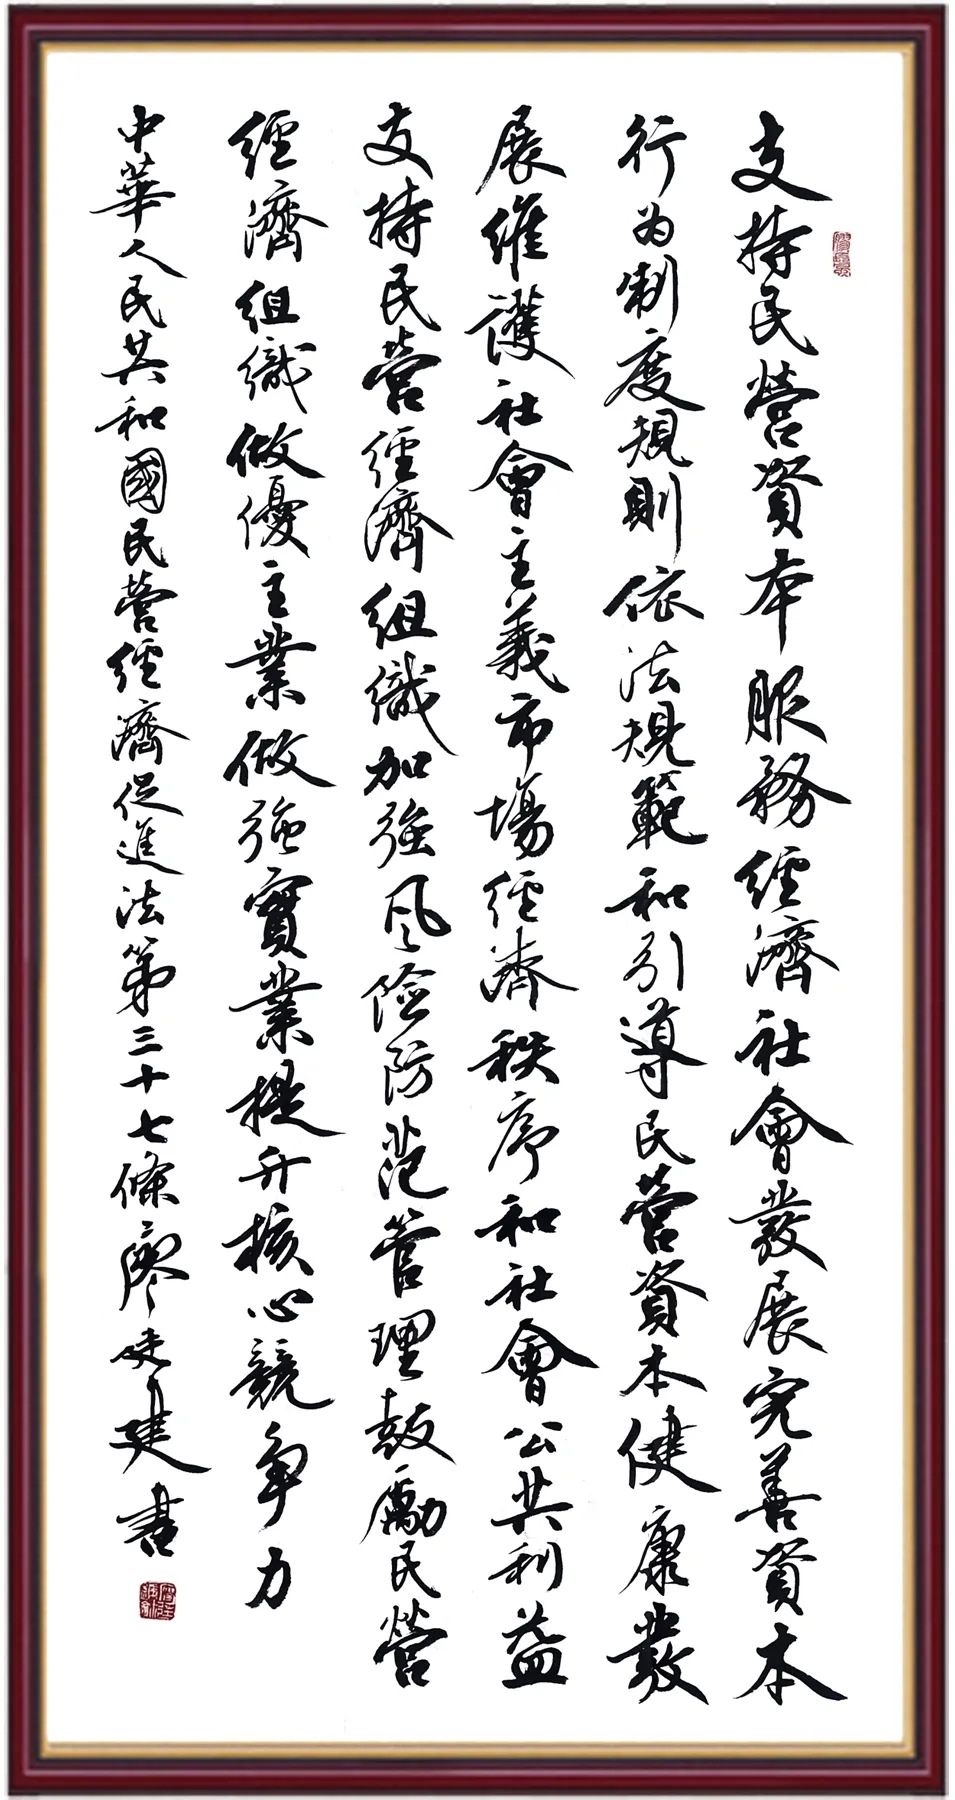 支持民營資本服務經濟社會發展完善資本
行为制度規則依法規範和引導民營資本健康發
展維護社會主義市場經濟秩序和社會公共利益
支持民營經濟組織加强风险防范管理鼓勵民營
經濟組織做優主業做强實業提升核心競争力
中華人民共和國民營經濟促進法第三十七條廖建書